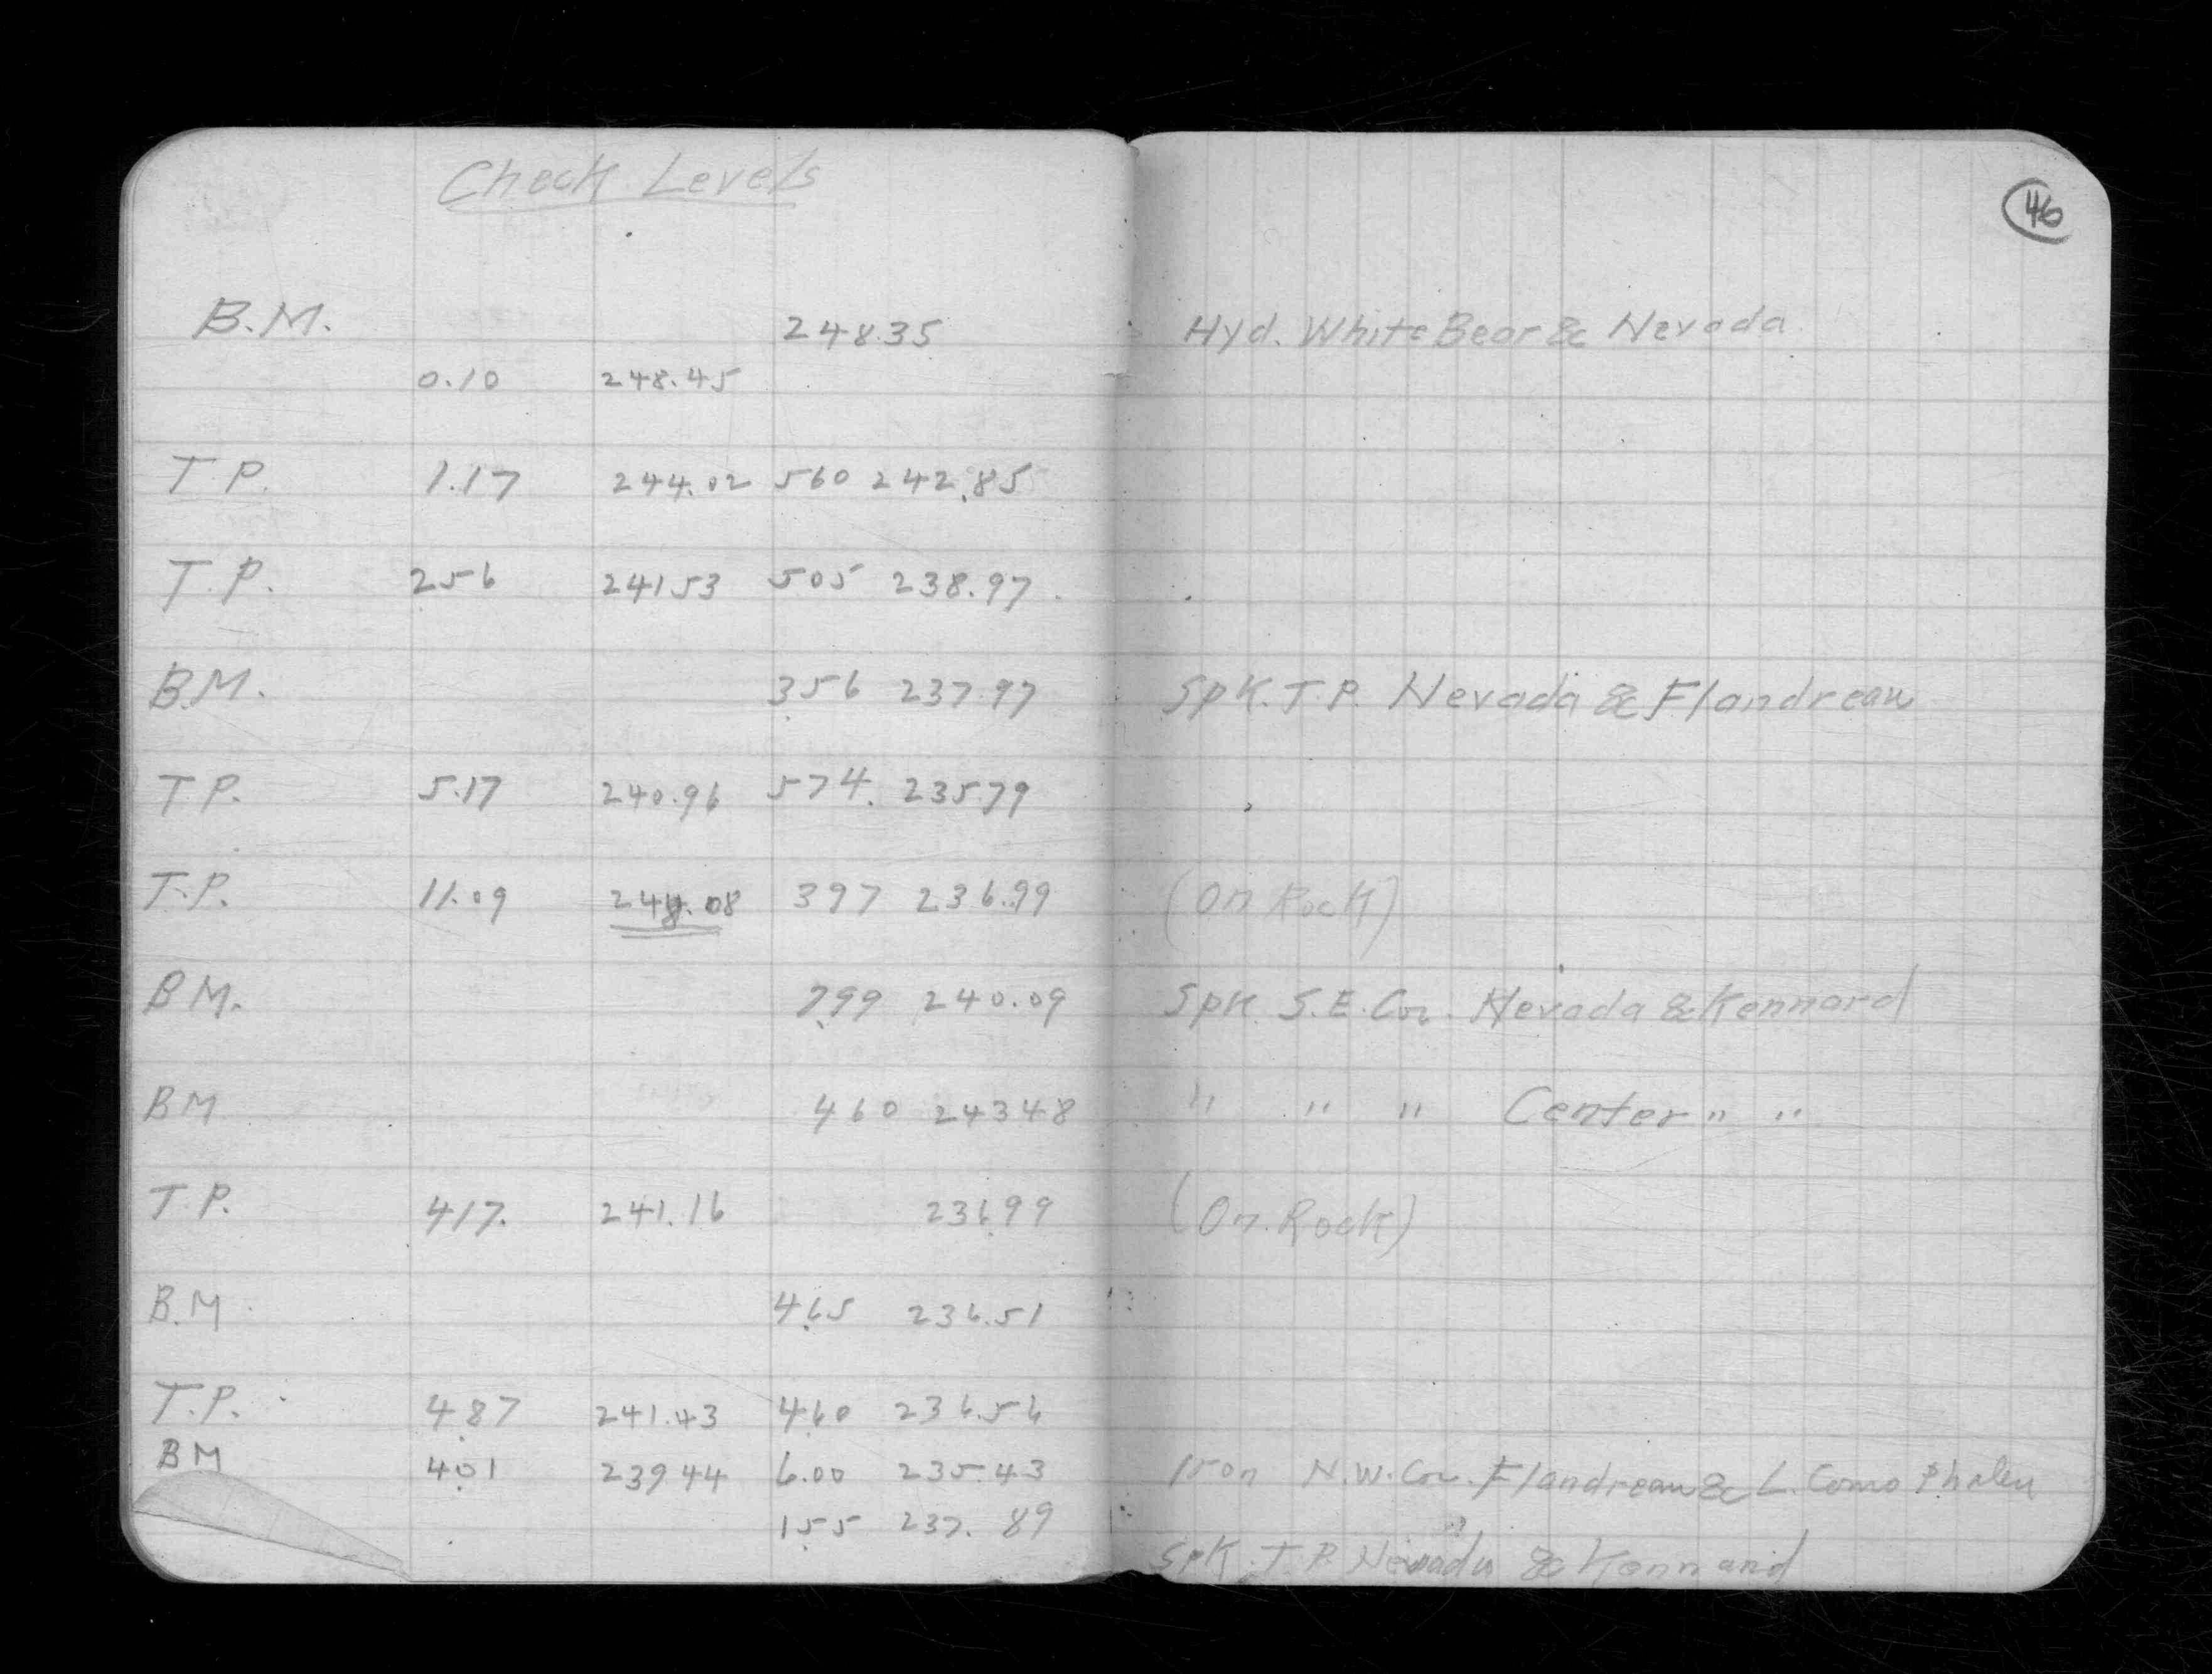 Check Levels
46
B.M. 248.35 Hyd. White Bear & Nevada
0.10 248.45
T.P. 1.17 244.02 560 242.85
T.P. 256 241 53 505 238.97
B.M. 3.56 237.97 Spk. T.P. Nevada & Flandreau
T.P. 5.17 240.96 574. 235.79
T.P. 11.09 248.08 397 236.99 (On Rock)
B M. 7.99 240.09 Spk S.E. Cor. Nevada & Kennard
B M 4.60 243 48 " " " Center " "
T.P. 417. 241.16 236.99 (On. Rock)
B.M 4.65 236.51
T.P. 4.87 241.43 4.60 236.56
B M 4.01 239 44 6.00 235.43 Iron N.W. Cor. Flandreau & L. Como Phalen
1.55 237.89
Spk. T.P. Nevada & Kennard